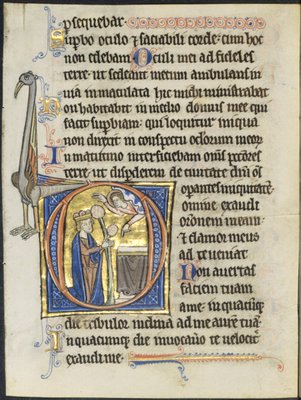 psequebar.
Supbo oculo & saciabili corde: cum hoc
non edebam. Oculi mei ad fideles
terre: ut sedeant mecum ambulans in
via inmaculata hic michi ministrabat.
Non habitabit in medio domus mee qui
facit supbiam: qui loquitur iniqua
non direxit in conspectu oculorum meor
In matutino interficiebam oms pctores
terre: ut disperderem de civitate dni
opantes iniquitate.
Domine exaudi
orōnem meam:
& clamor meus
ad te veniat.
Non avertas
faciem tuam
a me: in quacūq;
die tribulor inclina ad me aurem tuā.
In quacumque die invocavero te velocit
exaudi me.